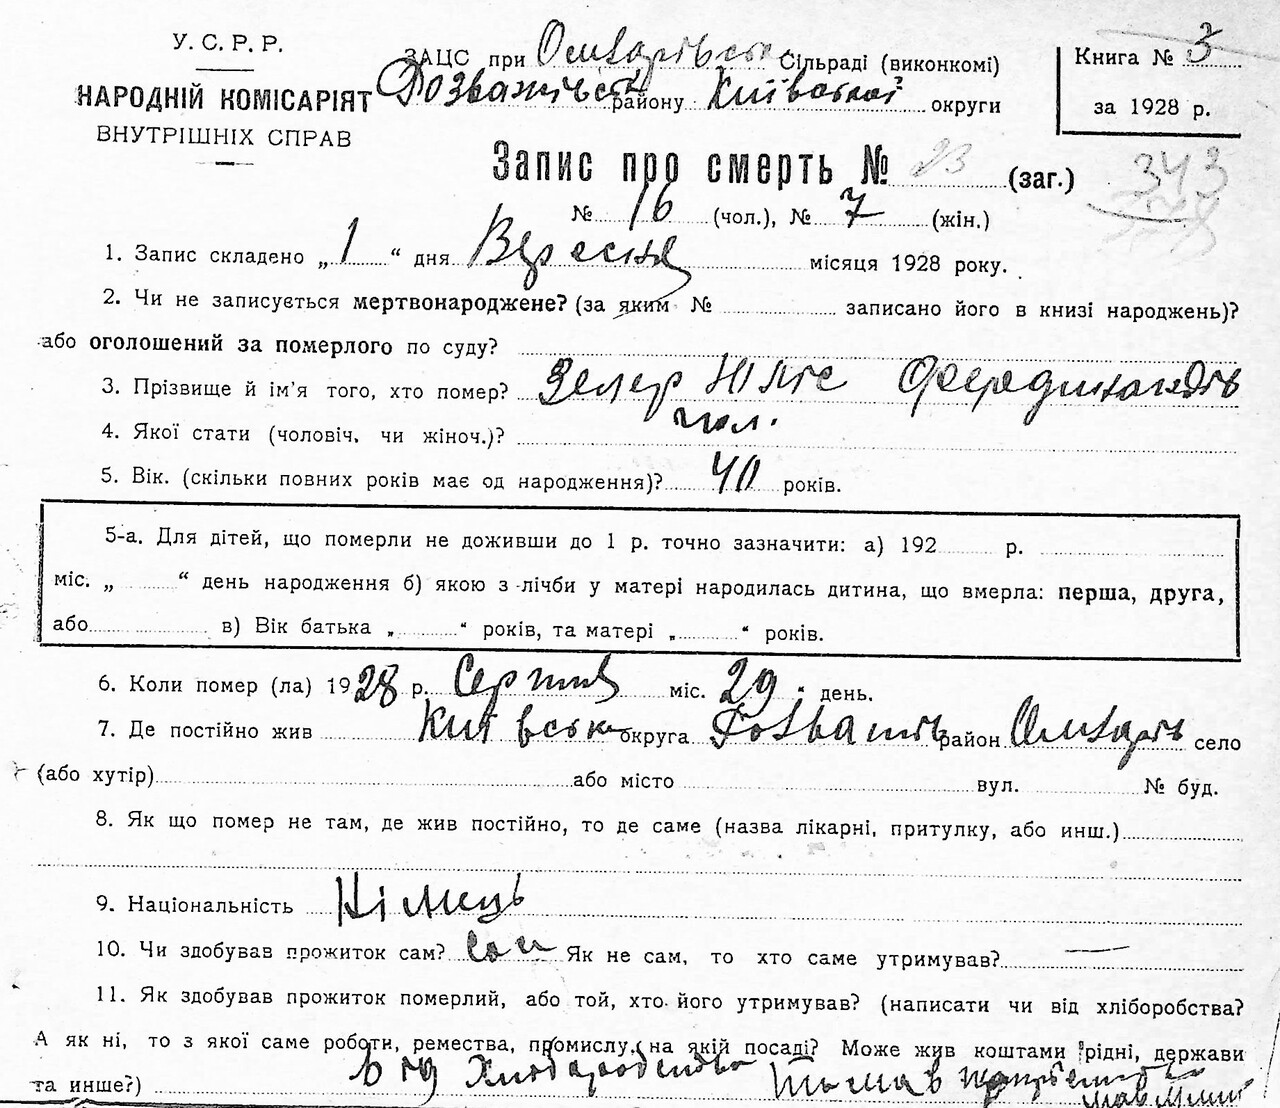 У. С. Р. Р.
НАРОДНІЙ КОМІСАРІЯТ
ВНУТРІШНІХ СПРАВ
ЗАЦС при Сільраді (виконкомі)
району Київської округи
Книга № 3
за 1928 р.
Запис про смерть № 23 (заг.)
343
№ 16 (чол.), № 7 (жін.)
1. Запис складено „ 1 “ дня Вересня місяця 1928 року.
2. Чи не записується мертвонароджене? (за яким № записано його в книзі народжень)?
або оголошений за померлого по суду?
3. Прізвище й ім’я того, хто помер? Зелер
4. Якої стати (чоловіч. чи жіноч.)? чол.
5. Вік. (скільки повних років має од народження)? 40 років.
5-а. Для дітей, що померли не доживши до 1 р. точно зазначити: а) 192 р.
міс. „ “ день народження б) якою з лічби у матері народилась дитина, що вмерла: перша, друга,
або в) Вік батька „ “ років, та матері „ “ років.
6. Коли помер (ла) 1928 р. Серпня міс. 29 “ день.
7. Де постійно жив Київська округа район село
(або хутір) або місто вул. № буд.
8. Як що помер не там, де жив постійно, то де саме (назва лікарні, притулку, або инш.)
9. Національність Німець
10. Чи здобував прожиток сам? сам Як не сам, то хто саме утримував? —
11. Як здобував прожиток померлий, або той, хто його утримував? (написати чи від хліборобства?
А як ні, то з якої саме роботи, ремества, промислу, на якій посаді? Може жив коштами рідні, держави
та инше?) від Хліборобства